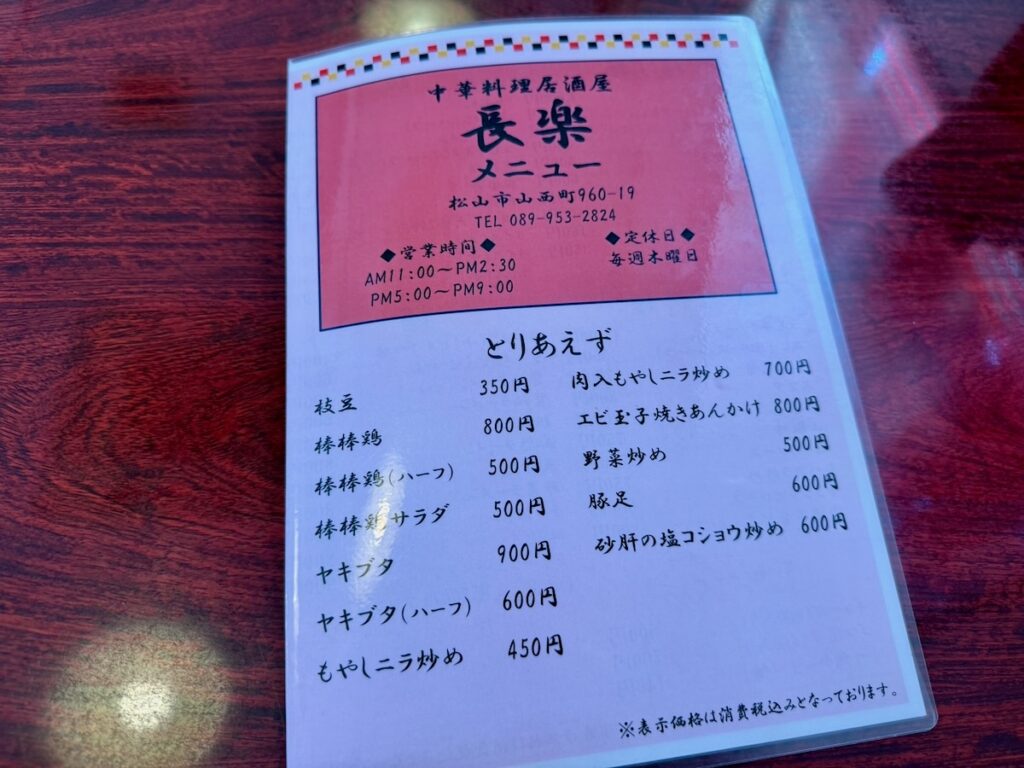 中華料理居酒屋
長楽
メニュー
松山市山西町960-19
TEL 089-953-2824
◆営業時間◆
AM11:00～PM2:30
PM5:00～PM9:00
◆定休日◆
毎週木曜日
とりあえず
枝豆 350円
棒棒鶏 800円
棒棒鶏(ハーフ) 500円
棒棒鶏サラダ 500円
ヤキブタ 900円
ヤキブタ(ハーフ) 600円
もやしニラ炒め 450円
肉入もやしニラ炒め 700円
エビ玉子焼きあんかけ 800円
野菜炒め 500円
豚足 600円
砂肝の塩コショウ炒め 600円
※表示価格は消費税込みとなっております。